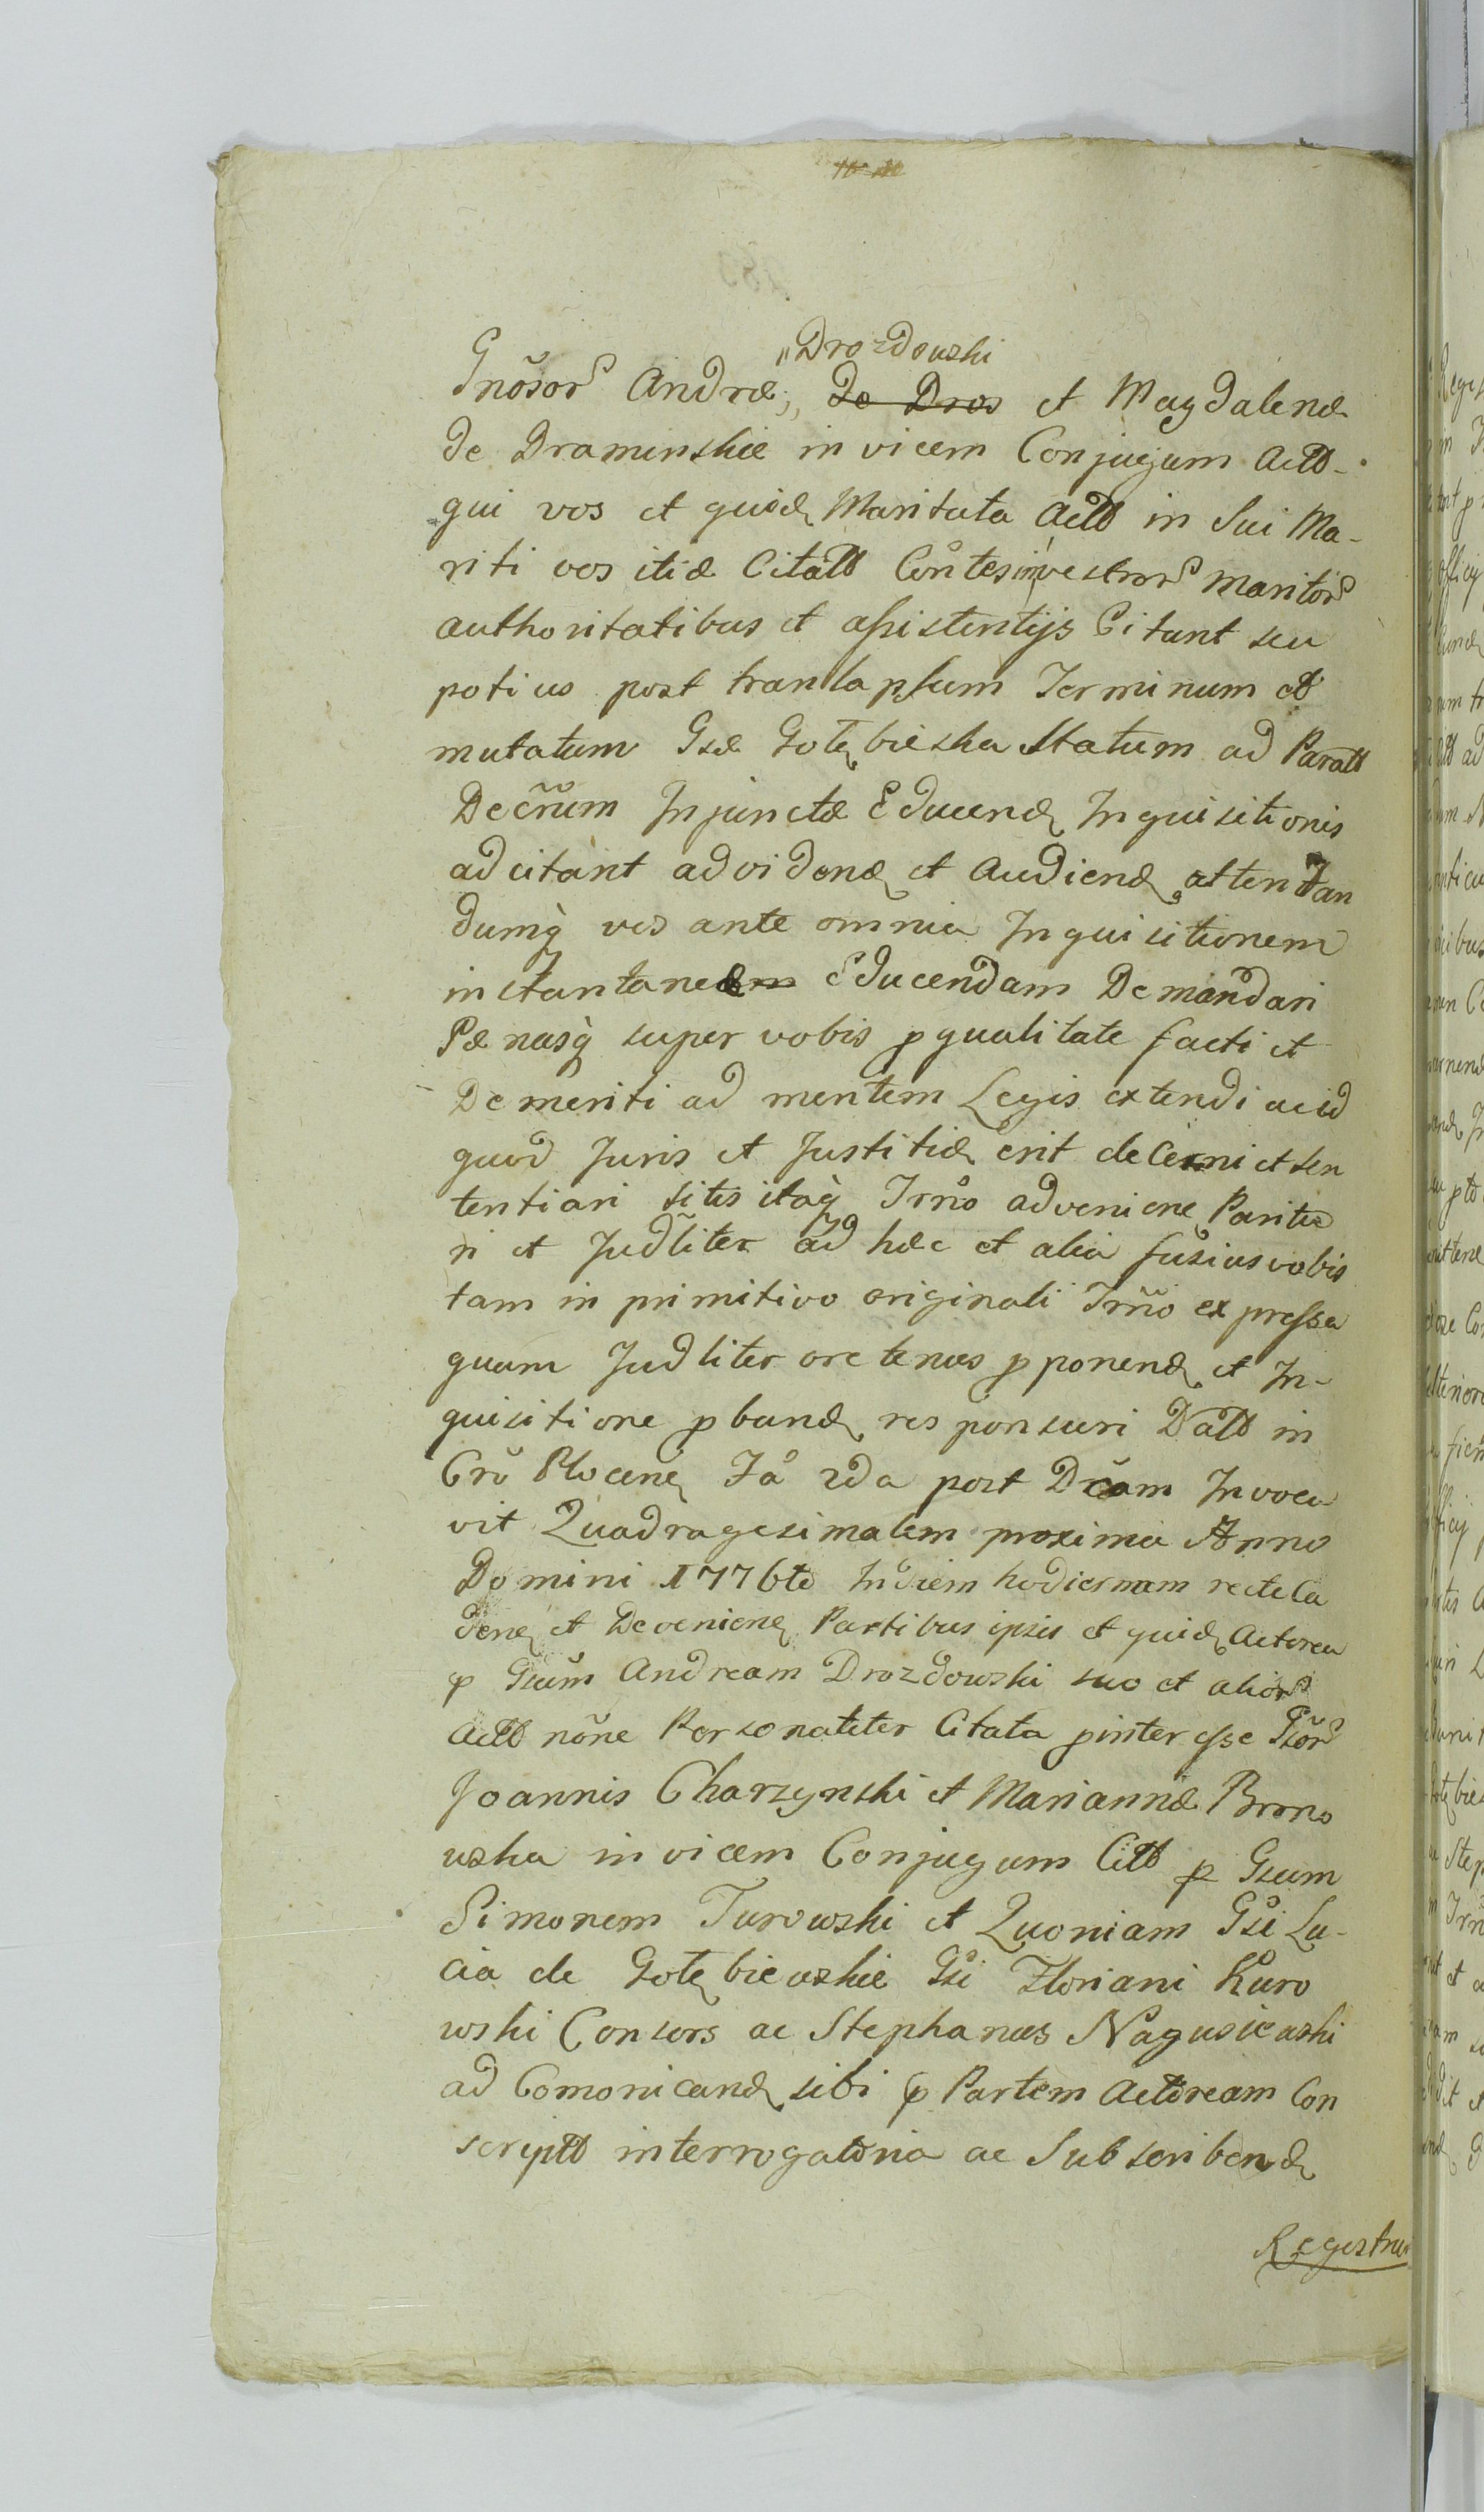 Drozdowski
Gnõsor Andræ, de Dros et Magdalenæ
de Draminskie invicem Conjugum Actt.
qui vos et quidę Maritata Actt in sui Ma-
riti vos itidæ Citatt Contes in vestror maritor
authoritatibus et assistentijs Citant seu
potius post translapsum Terminum et
mutatum Gsæ Gotębieska Statum ad Paratt
Decrum Injunctæ Educendę Inquisitionis
adcitant advidendę et Audiendę attentan
dumq̀ vos ante omnia Inquisitionem
instantaneam Educendam Demandari
Pænasq̀ super vobis p qualitate facti et
Demeriti ad mentem Legis extendi ac id
quod Juris et Justitiæ erit decerni et sen
tentiari sitis itaq̀ Trno advenienę Paritu
ri et Judliter ad hæc et alia fusius vobis
tam in primitivo originali Trno expressa
quam Judliter oretenus pponendę et In-
quisitione pbandę responsuri Datt in
Crõ Plocenę Fa 2da post Dcam Invoca
vit Quadragesimalem proxima Anno
Domini 1776to In diem hodiernam recte Ca
denę et Devenienę Partibus ipsis et quidę Actorea
p Gsum Andream Drozdowski suo et alior
Actt nõne Personaliter Citata p interesse Gsor
Joannis Charzynski et Mariannæ Brono
wska invicem Conjugum Citt p Gsum
Simonem Turowski et Quoniam Gsi Lu-
cia de Gotębiewskie Gsi Floriani Kuro
wski Consors ac Stephanus Nagusiewski
ad Comonicandę sibi p Partem Actoream Con
scriptt interrogatoria ac Subscribendę
Registru